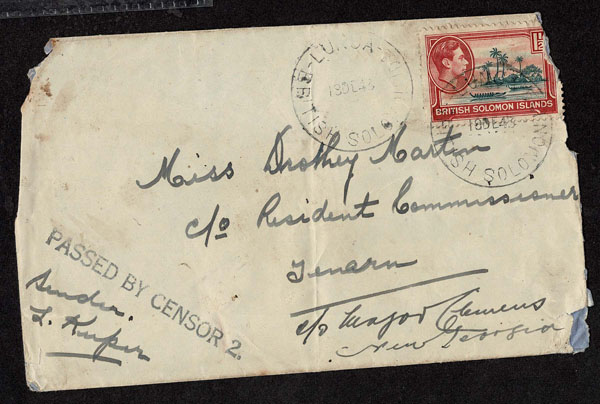 1½
BRITISH SOLOMON ISLANDS
BRITISH SOLO
19 DE 43
19 DE 43
ISH SOLOMON
Miss Drothey Martin
c/o Resident Commissioner
Tenaru
c/o Major Clemens
New Georgia
PASSED BY CENSOR 2.
Sender.
L. Kuper